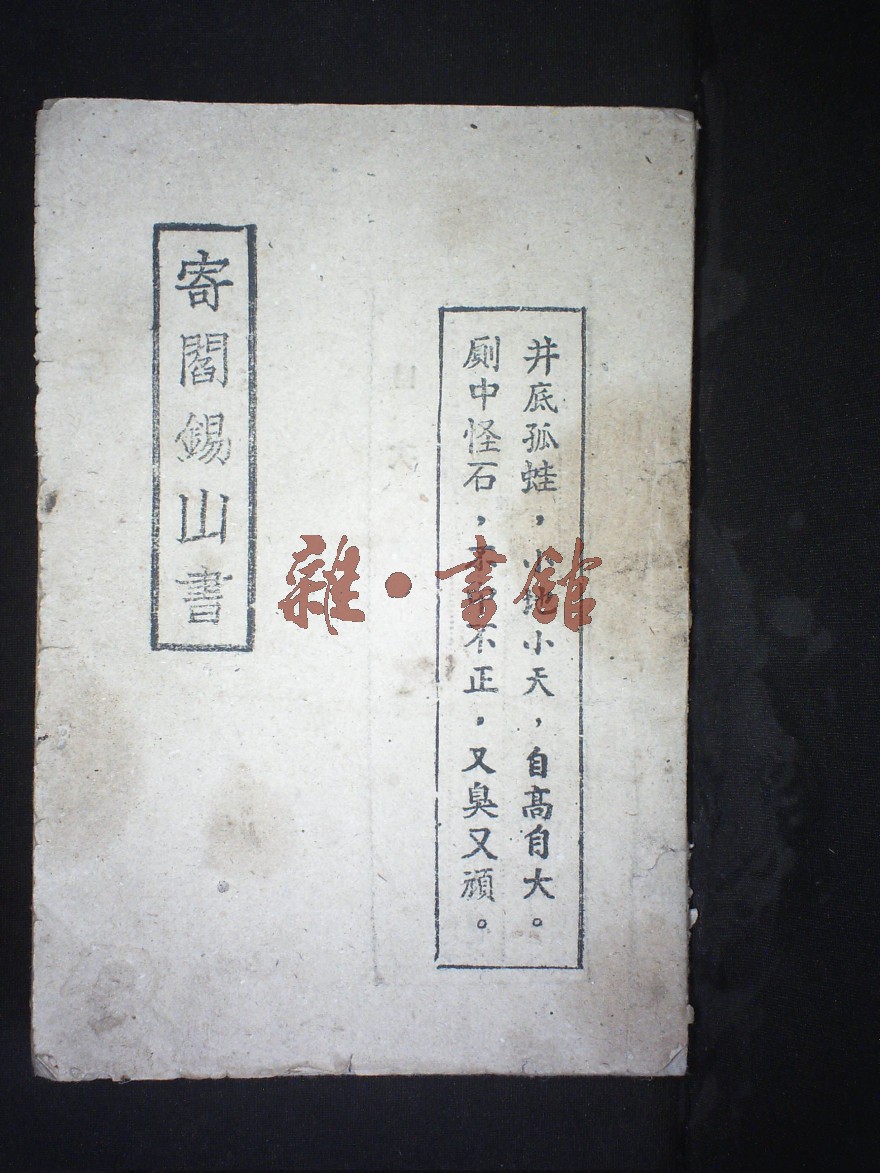 井底孤蛙，小地小天，自高自大。
厠中怪石，不正，又臭又頑。
寄閻錫山書
雜·書館